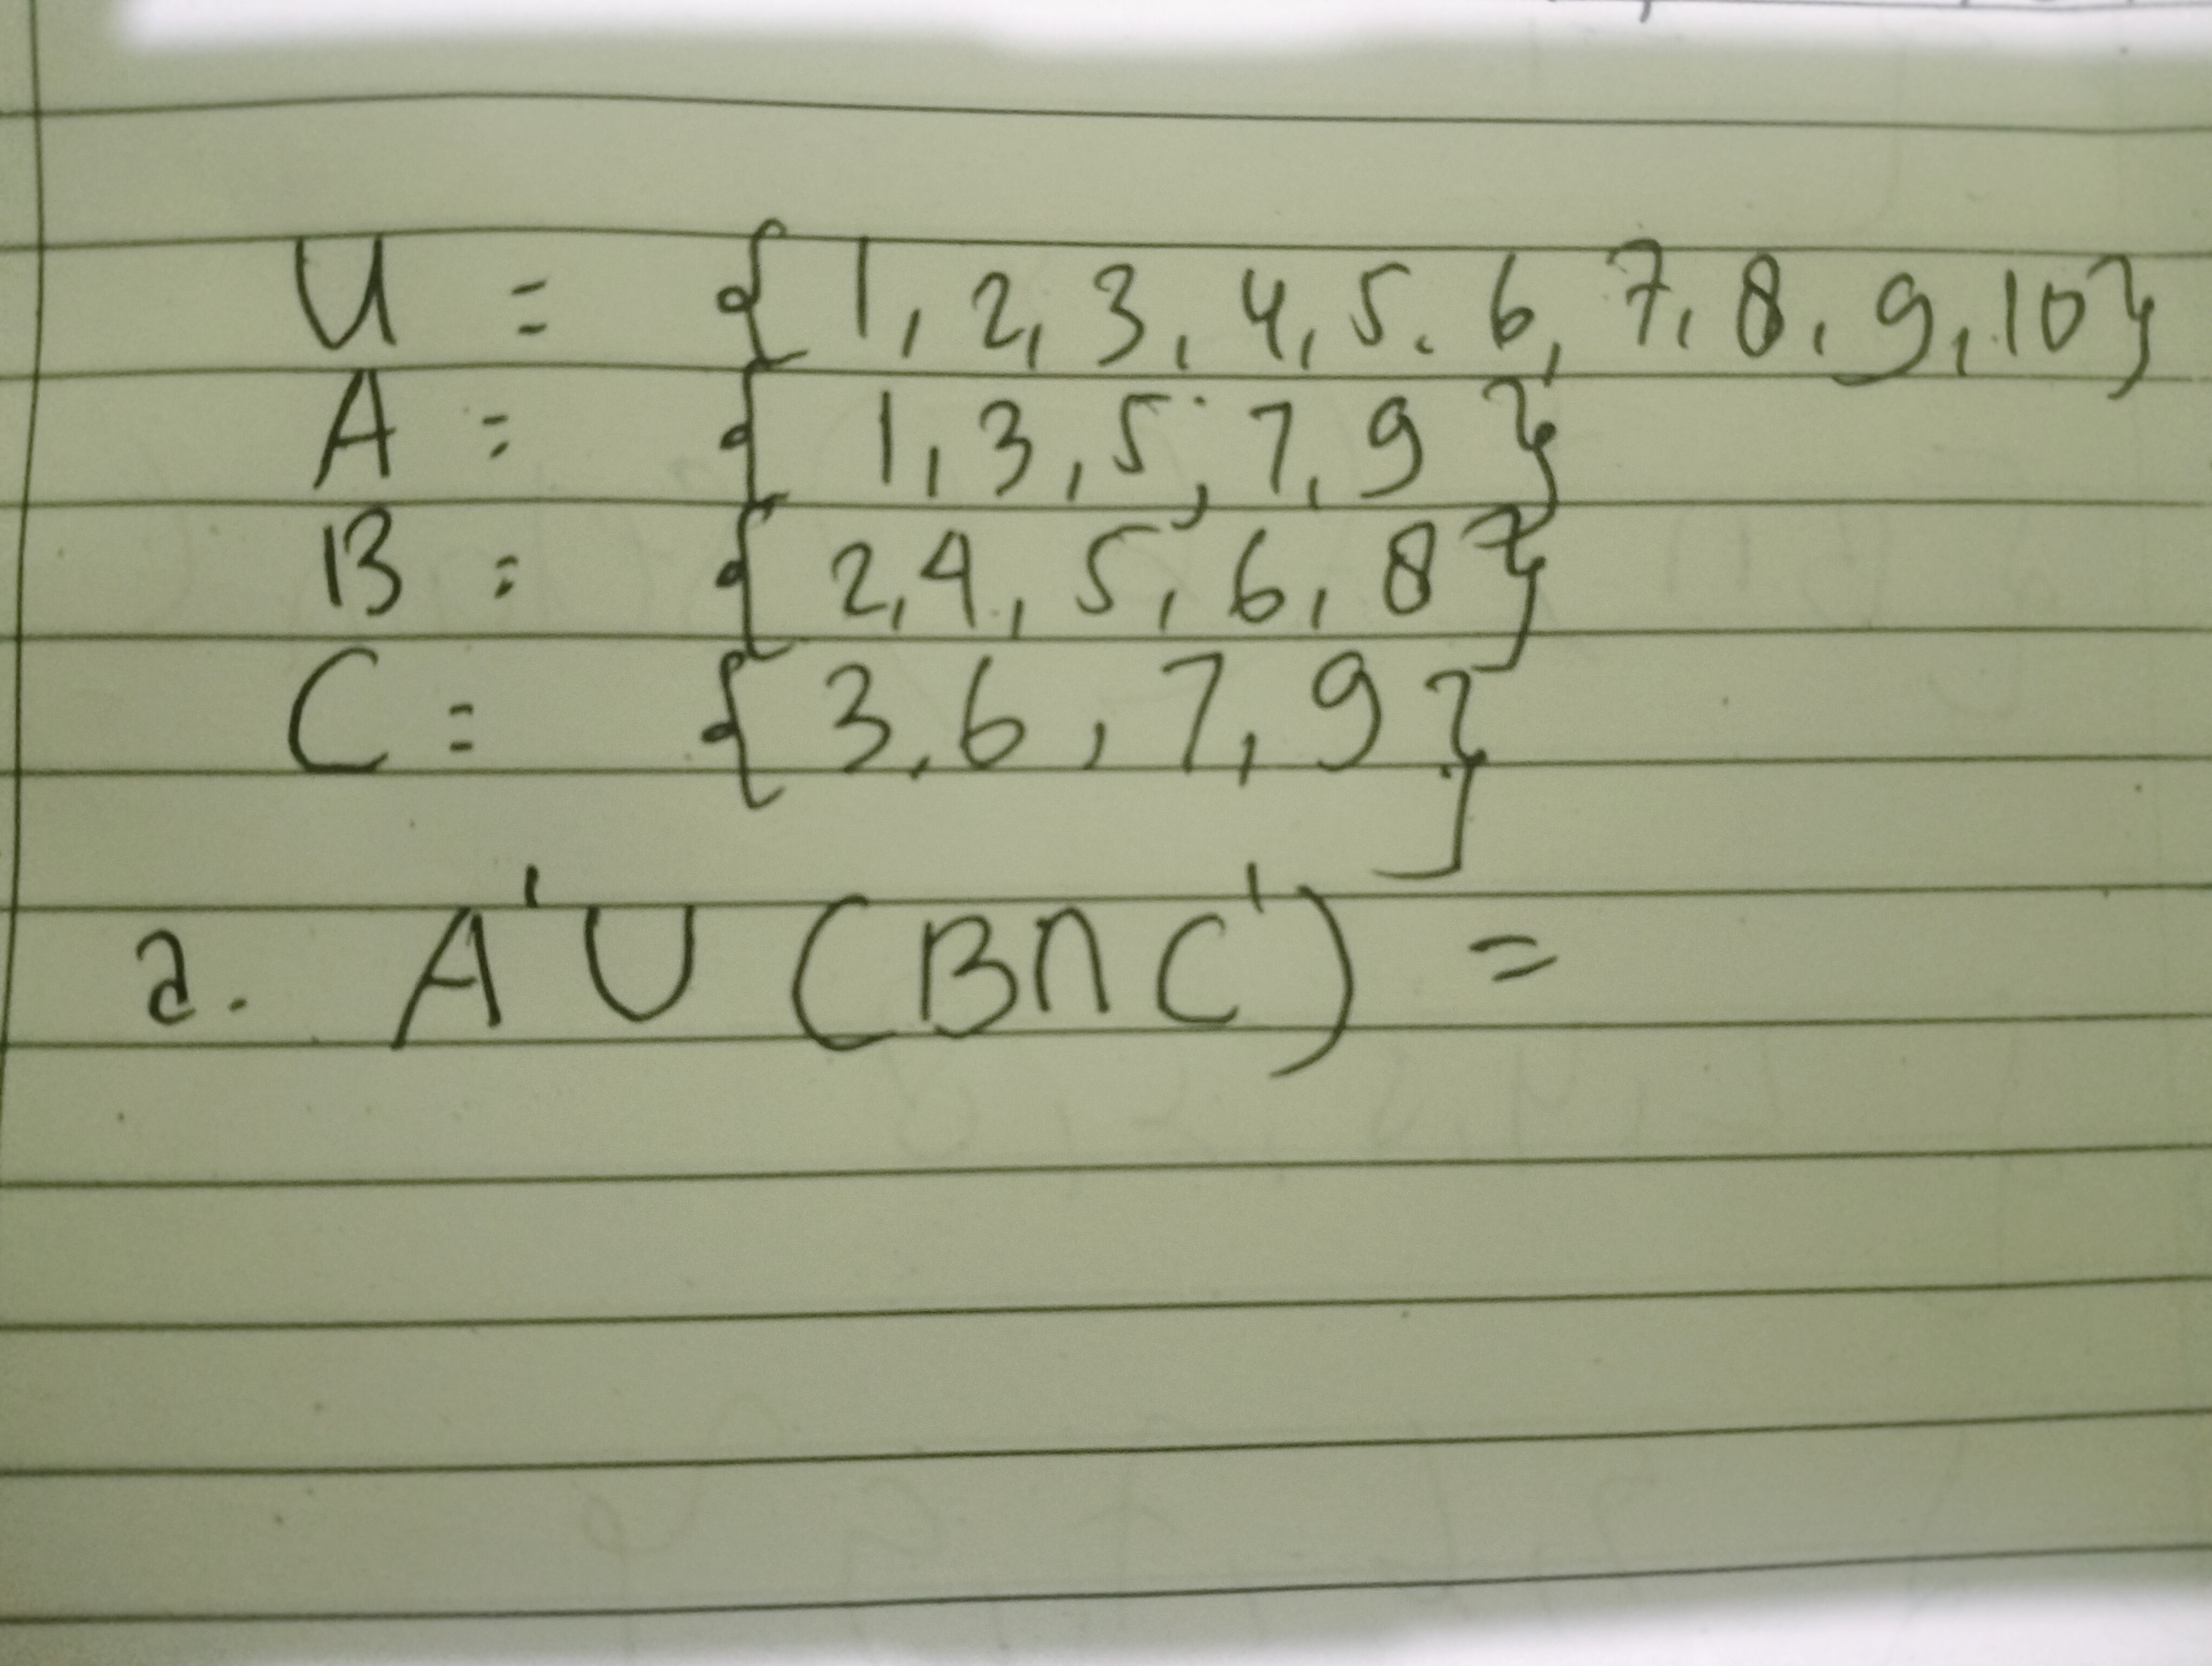 U = {1, 2, 3, 4, 5. 6, 7, 8, 9, 10}
A = {1, 3, 5, 7, 9}
B = {2, 4, 5, 6, 8}
C = {3, 6, 7, 9}
a. A' ∪ (B ∩ C') =